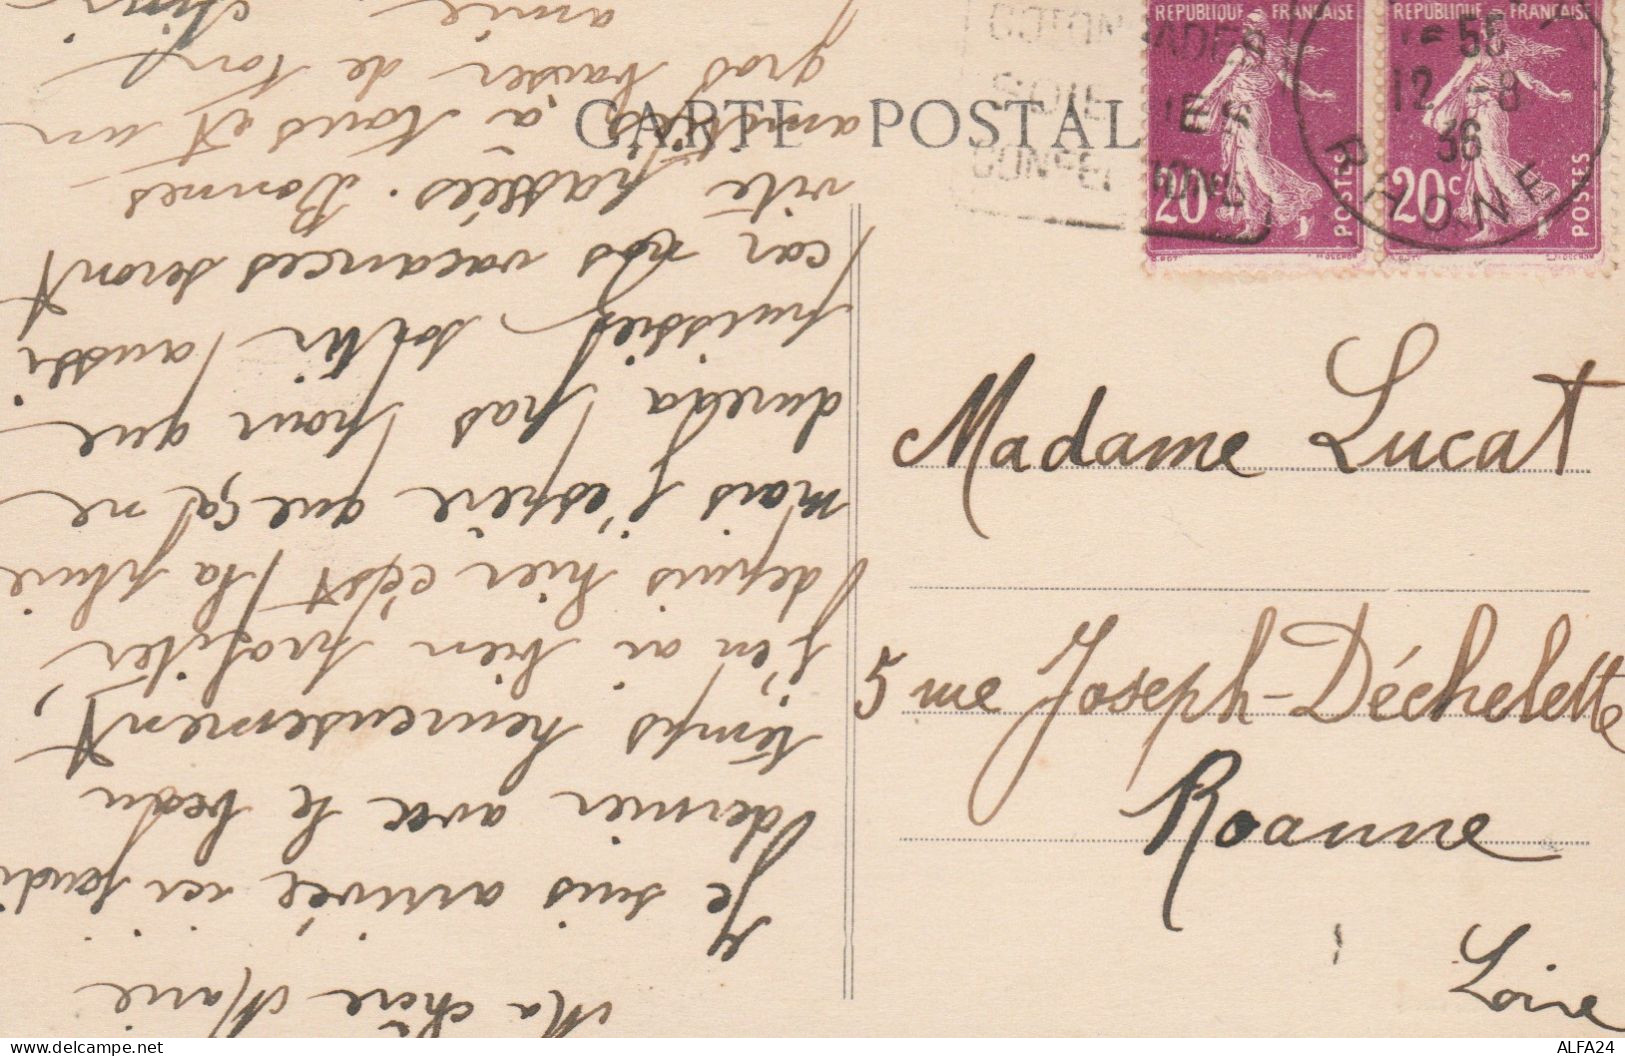 CARTE POSTALE
REPUBLIQUE FRANCAISE
REPUBLIQUE FRANCAISE
20c
POSTES
20c
POSTES
12 -8
36
RHONE
Madame Lucat
5 rue Joseph-Déchelette
Roanne
Loire
Ma chère Marie
Je suis arrivée ici jeudi
dernier avec le beau
temps heureusement,
j'en ai bien profiter
depuis hier c'est la pluie
mais j'espère que ça ne
durera pas pour que
puissiez sortir aussi
car nos vacances seront
vite passées. Bonnes
amitiés à tous et un
gros baiser de ton
amie
ALFA24